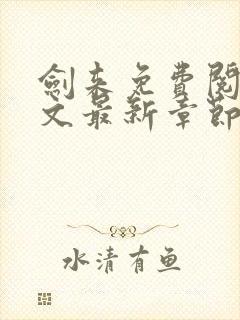 劍来免費閱
文最新章節
水清有鱼